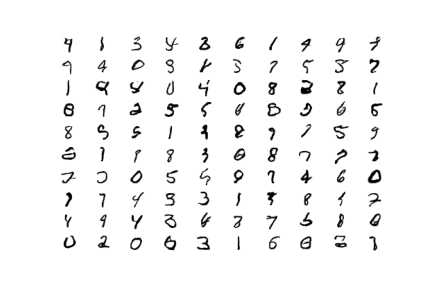 9 1 3 4 3 6 1 4 9 9
9 4 0 9 1 3 7 5 3 2
1 9 4 0 4 0 8 3 8 1
8 7 2 5 5 6 8 2 6 5
8 5 5 1 8 9 1 5 9
1 9 8 3 0 8 7 7 2
7 0 5 5 9 7 4 6 0
7 7 4 3 3 1 8 1 2
4 9 4 3 6 3 7 5 8 6
0 2 0 6 3 1 6 8 3 1